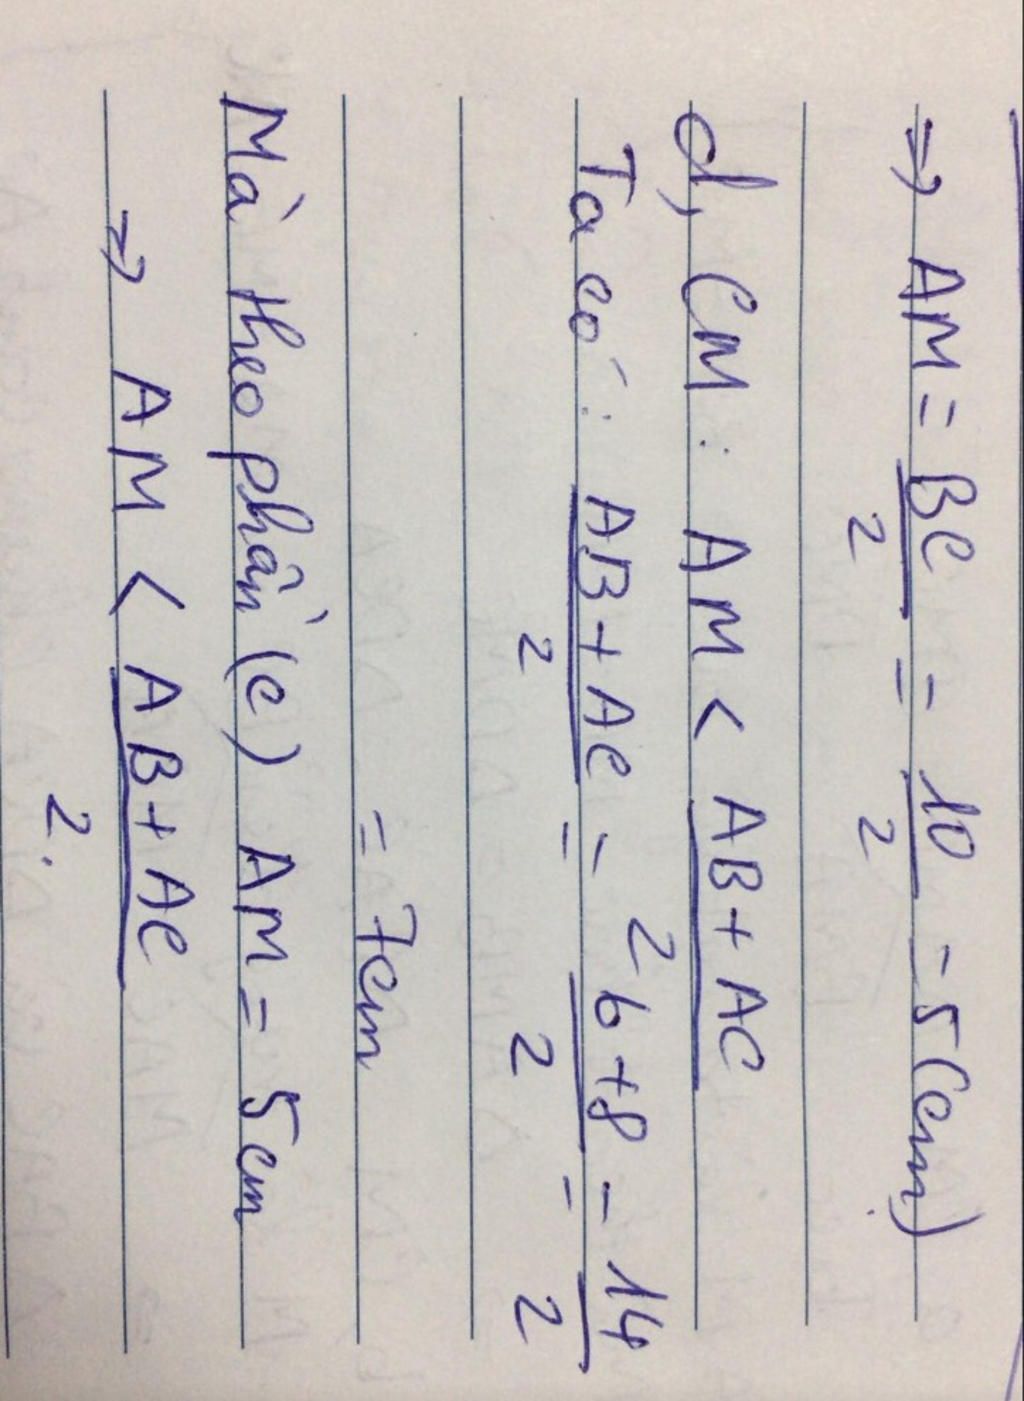 => AM = BC/2 = 10/2 = 5 (cm)
d, CM : AM < AB + AC / 2
Ta có : AB + AC / 2 = 6 + 8 / 2 = 14 / 2
= 7cm
Mà theo phần (c) AM = 5cm
=> AM < AB + AC / 2.